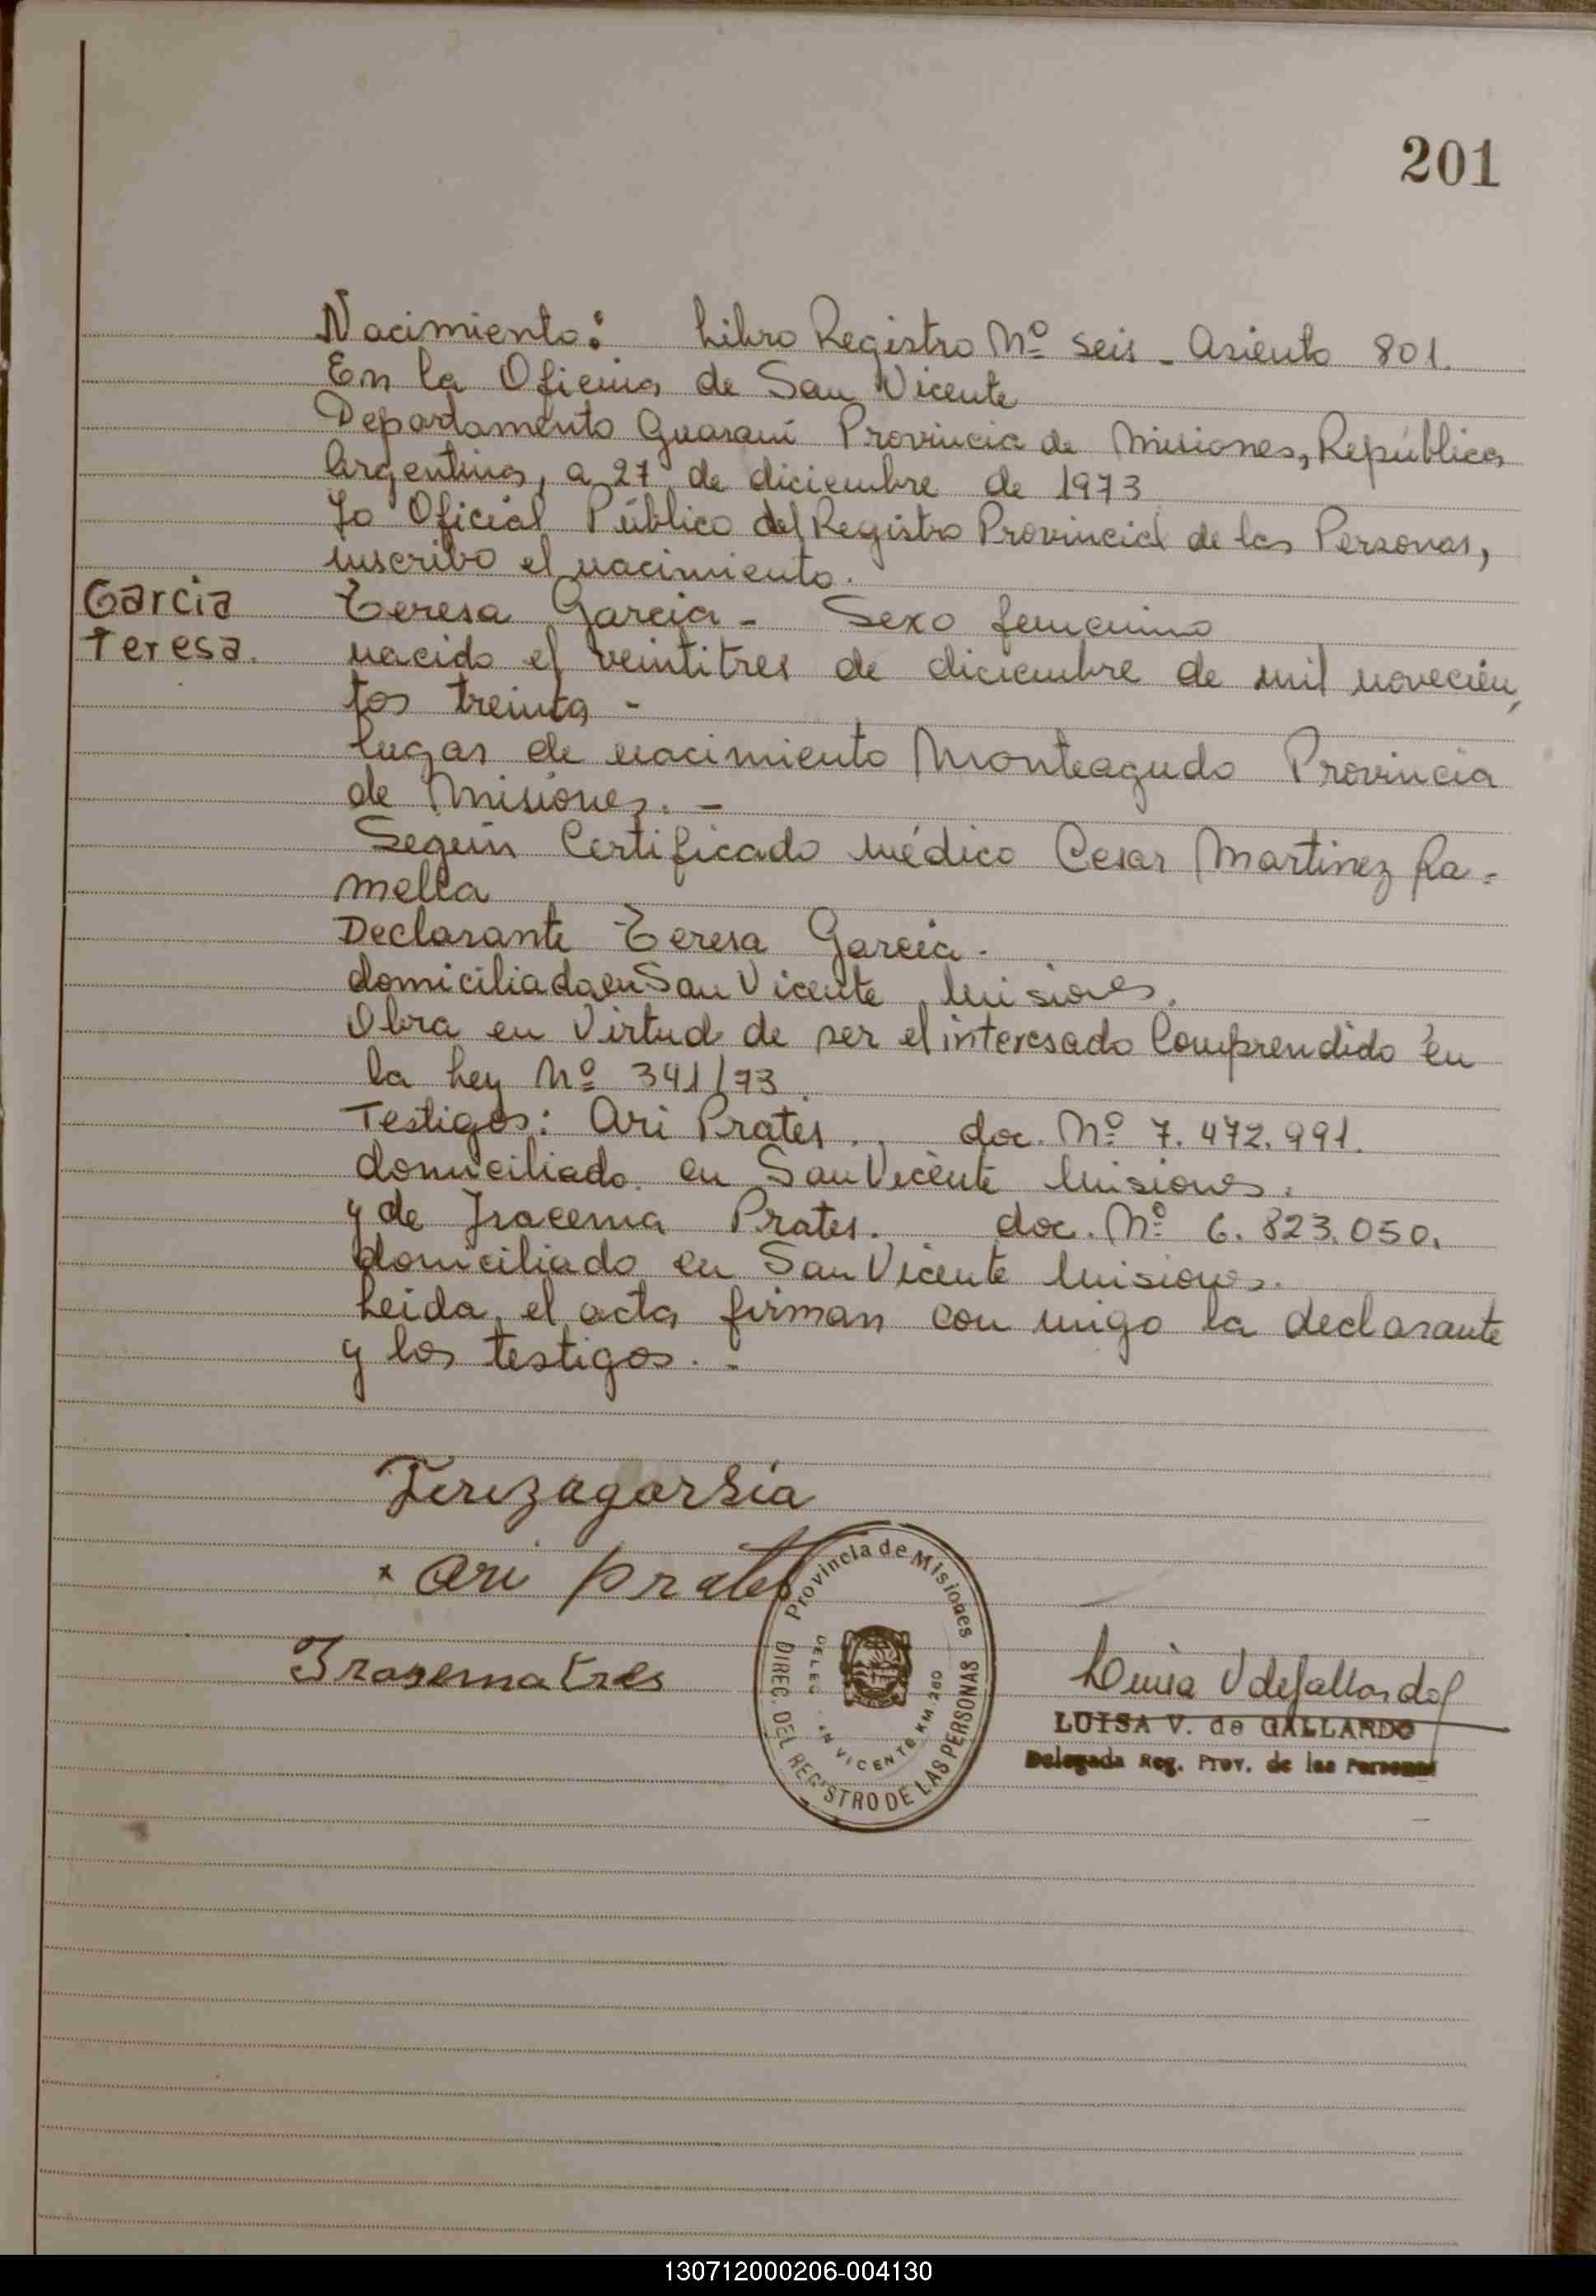 201
Nacimiento: Libro Registro Nº seis - Asiento 801.
En la Oficina de San Vicente
Departamento Guaraní Provincia de Misiones, República
Argentina, a 27 de diciembre de 1973
Yo Oficial Público del Registro Provincial de las Personas,
inscribo el nacimiento.
Garcia
Teresa.
Teresa Garcia - Sexo femenino
nacido el veintitres de diciembre de mil novecien,
tos treinta -
lugar de nacimiento Monteagudo Provincia
de Misiones. -
Según Certificado médico Cesar Martinez Ra-
mella
Declarante Teresa Garcia.
domiciliada en San Vicente Misiones.
Obra en Virtud de ser el interesado Comprendido en
la Ley Nº 341/73
Testigos: Ari Prates. doc. Nº 7.472.991.
domiciliado en San Vicente Misiones.
y de Iracema Prates. doc. Nº 6.823.050.
domiciliado en San Vicente Misiones.
Leida el acta firman con migo la declarante
y los testigos. -
Terezagarsia
x ari prates
Irasematres
Provincia de Misiones
DIREC. DEL REGISTRO DE LAS PERSONAS
VICENTE KM. 260
Luisa V de Gallardo
LUISA V. de GALLARDO
Delegada Reg. Prov. de las Personas
130712000206-004130